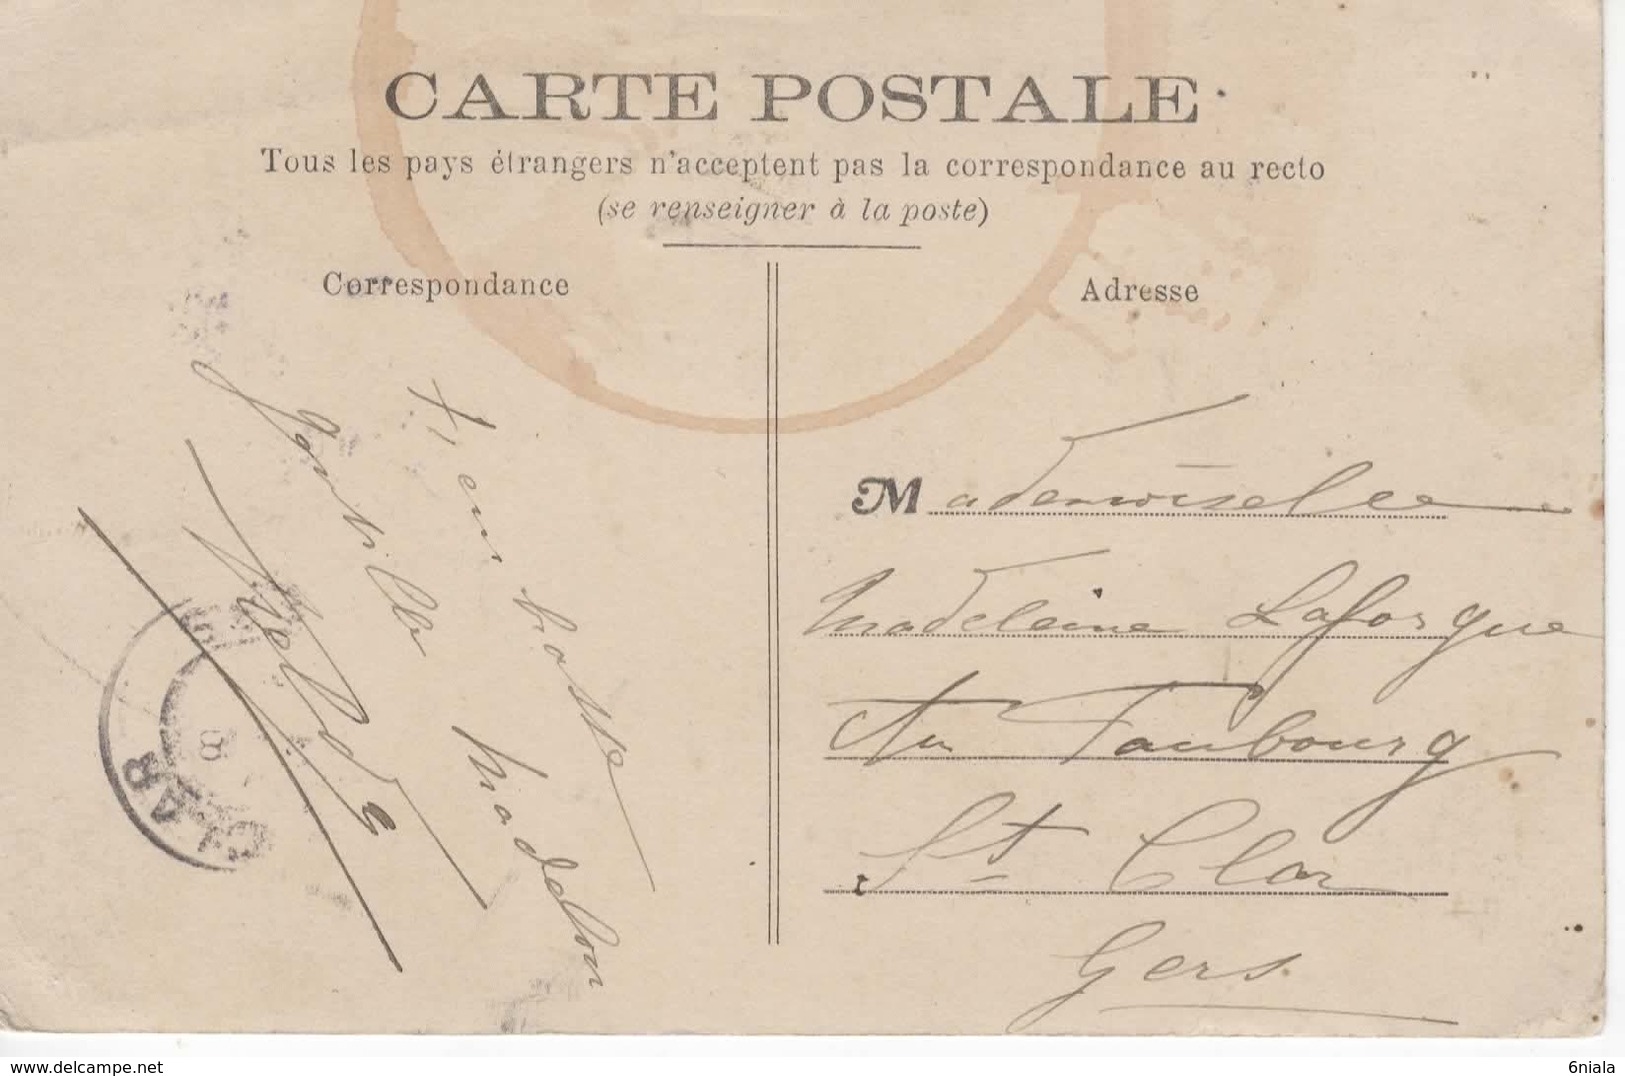 CARTE POSTALE
Tous les pays étrangers n'acceptent pas la correspondance au recto
(se renseigner à la poste)
Correspondance
Adresse
Mademoiselle
Madeleine Laforgue
Au Faubourg
St Clar
Gers
Madelon
CLAR
8
www.delcampe.net
6niala